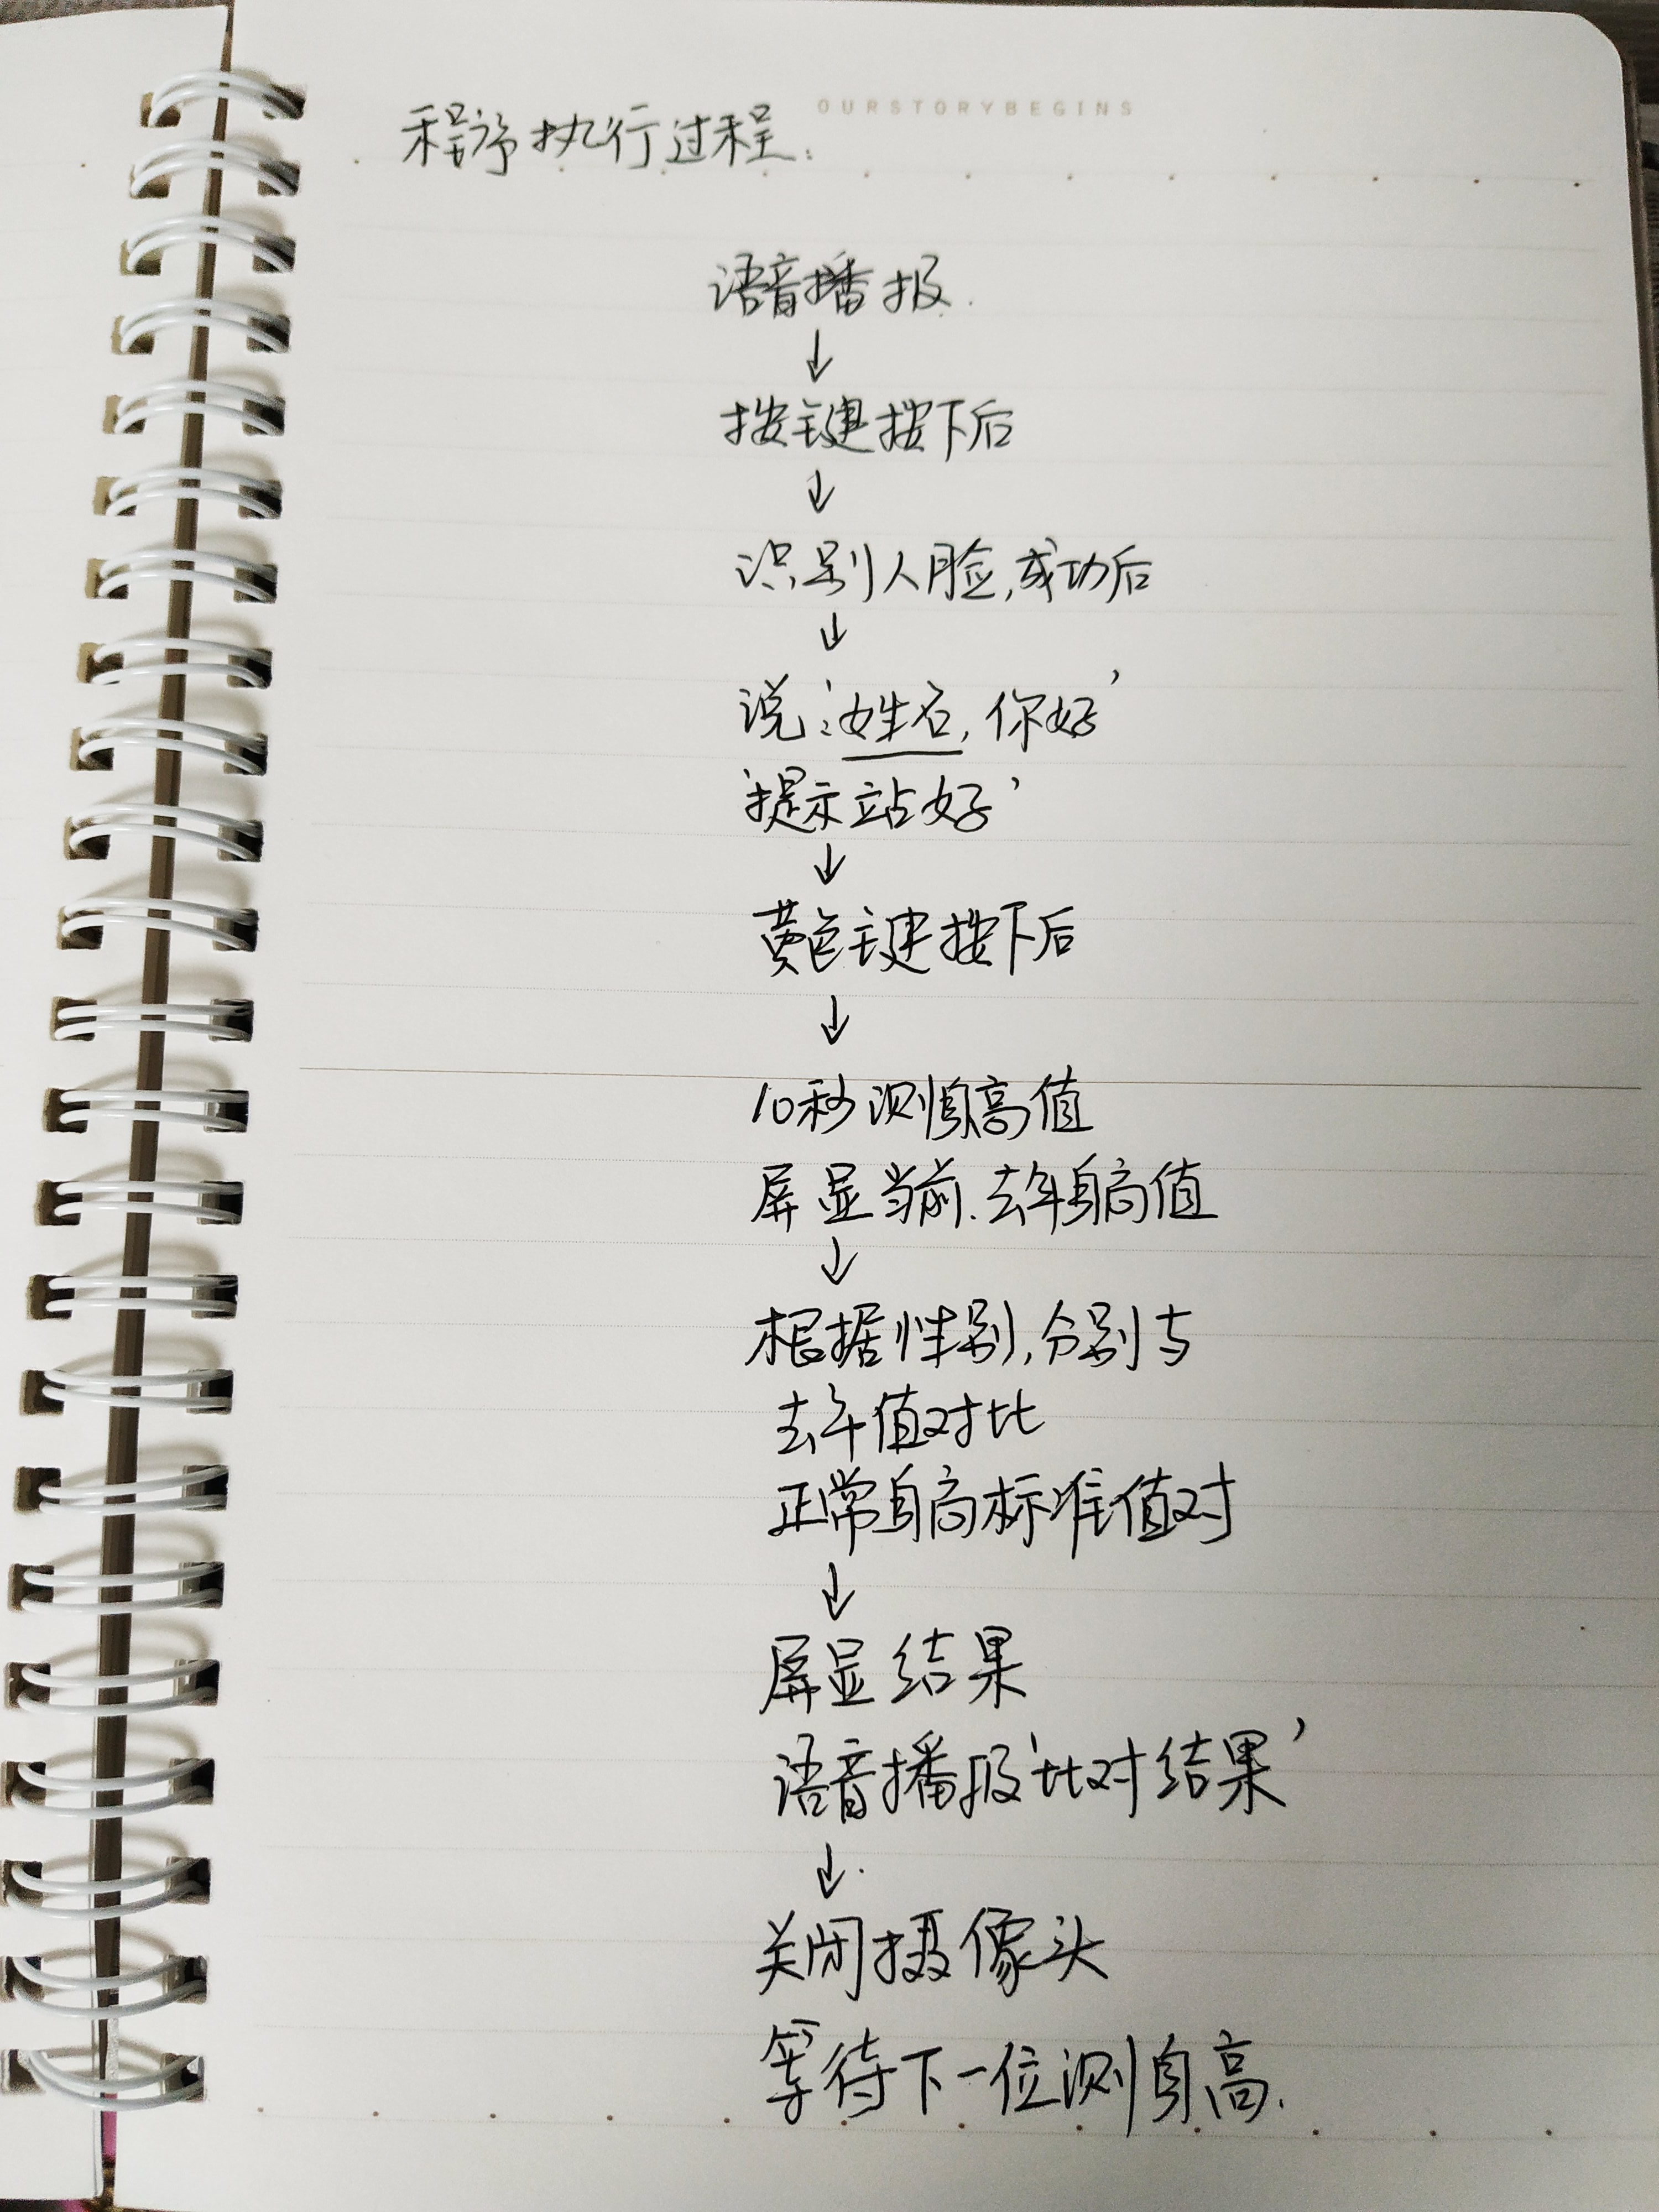 OURSTORYBEGINS
程序执行过程:
语音播报.
↓
按键按下后
↓
识别人脸,成功后
↓
说:'姓名,你好'
'提示站好'
↓
黄色键按下后
↓
10秒测身高值
屏显当前.去年身高值
↓
根据性别,分别与
去年值对比
正常身高标准值对
↓
屏显结果
语音播报'比对结果'
↓.
关闭摄像头
等待下一位测身高.